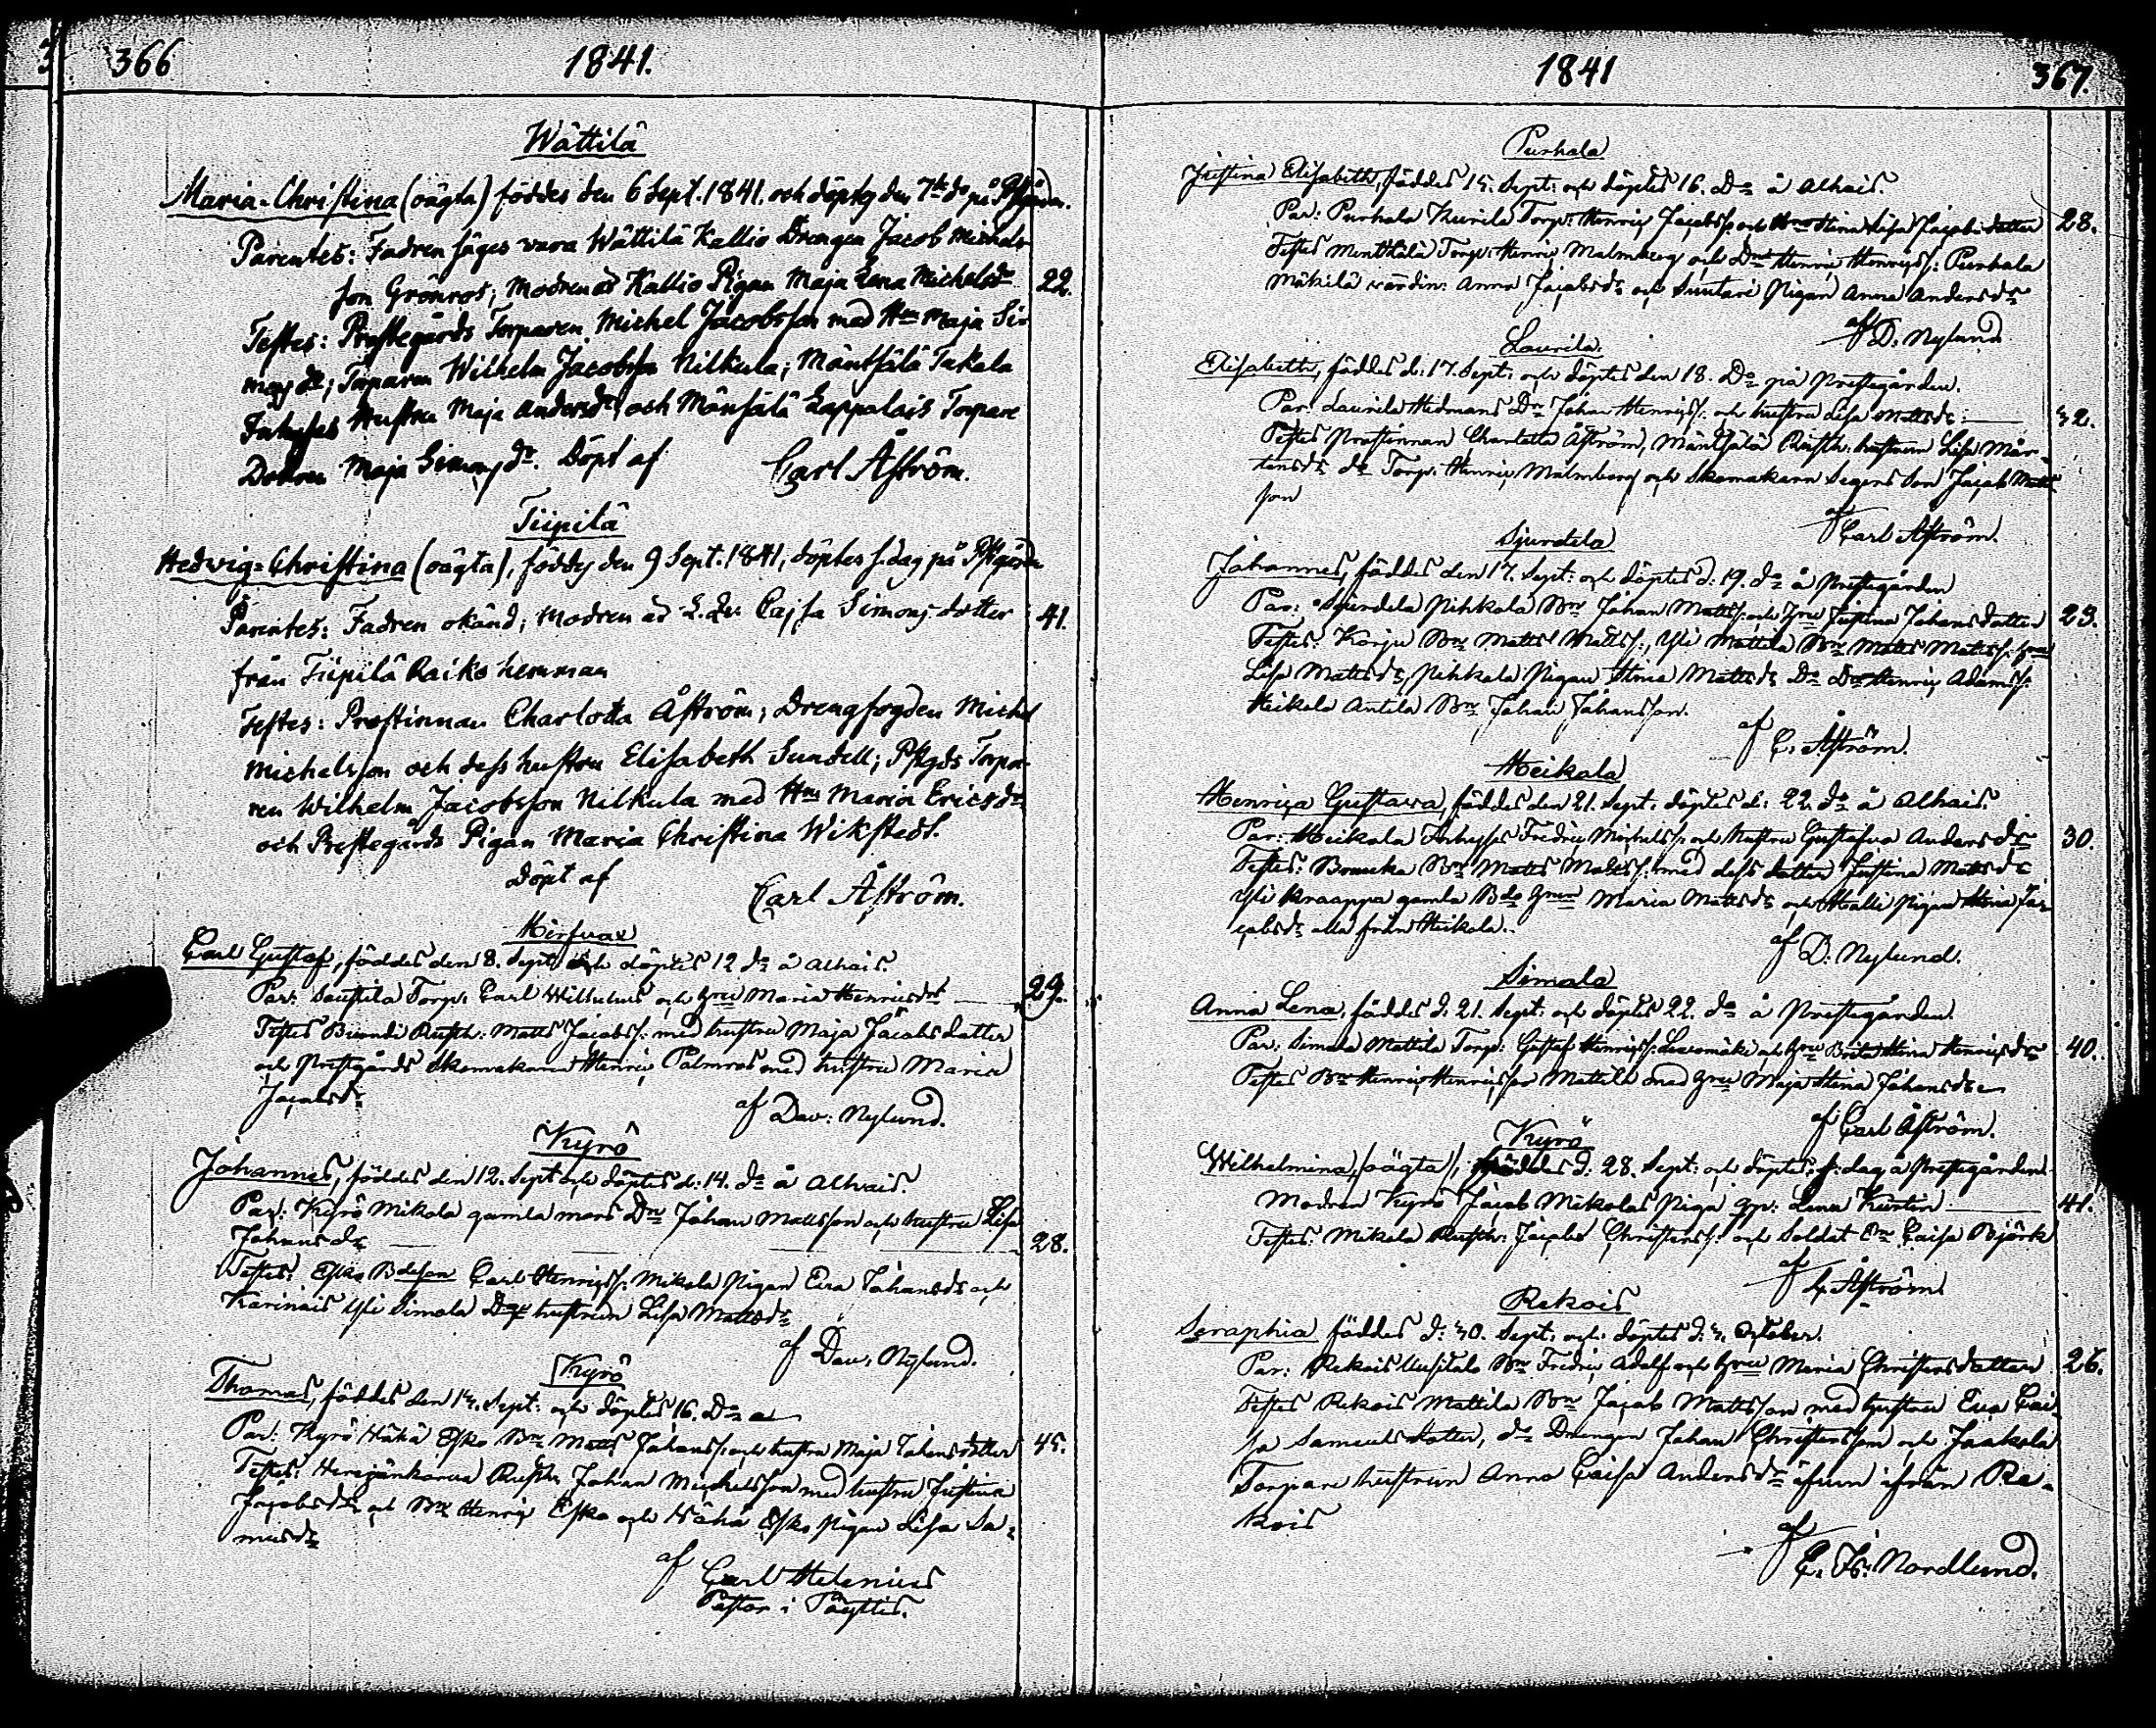 366 1841.
Wättilä
Maria-Christina (oägta) föddes den 6 Sept. 1841. och döptes den 7de do på Pstgården.
Parentes: Fadren säges vara Wättilä Kallio Drengen Jacob Michels-
son Grönros; Modren är Kallio Pigan Maja Lena Michelsdr 22.
Testes: Prestegårds Torparen Michel Jacobsson med Hm Maja Si-
monsdr; Torparen Wilhelm Jacobsson Nilkula; Mäntsälä Takala
Inhyses Hustru Maja Andersdr och Mänsälä Lappalais Torpare
Dottren Maja Simonsdr. Döpt af Carl Åström.
Tiipilä
Hedwig-Christina (oägta),föddes den 9 Sept. 1841, döptes s. dag på Pstgården
Parentes: Fadren okänd; Modren är L. Qv. Cajsa Simons dotter 41.
från Tiipilä Raiko hemman
Testes: Prostinnan Charlotta Åström; Drengfogden Michel
Michelsson och dess hustru Elisabeth Sundell; Pstgds Torpa-
ren Wilhelm Jacobsson Nilkula med Hm Maria Ericsdr
och Prestegårds Pigan Maria Christina Wikstedt.
Döpt af Carl Åström.
Hirfvax
Carl Gustaf, föddes den 8. Sept. och döptes 12 do å Alhais.
Par: Torp: Carl Wilhelms och Hru Maria Henricsdr 29.
Testes Rusth: Matts Jacobss: med hustru Maja Jacobs dotter
och Prestgårds Skomakaren Henric Palmros med hustru Maria
Jacobsdr af Dav: Nylund.
Kyrö
Johannes, föddes den 12. Sept och döptes d: 14. do å Alhais.
Par: Kyrö Mikola gamla mors Dr Johan Mattsson och hustru Lisa
Johansdr 28.
Testes: Esko Bdeson Carl Henricss: Mikola Pigan Eva Johansdr och
Karinais Yli Simola hustrun Lisa Mattsdr
af Dav. Nylund.
Kyrö
Thomas, föddes den 14. Sept: och döptes 16. Do
Par: Kyrö Nähä Esko Bn Matts Johanss: och hustru Maja Johans dotter 45.
Testes: Rusth. Johan Michelsson med hustru Justina
Jacobsdr, och Bn Henric Esko och Nähä Esko Pigan Lisa Sa-
muelsdr
af Carl Helenius
Pastor i Pöyttis.
1841 367.
Purhala
Justina Elisabeth, föddes 15. Sept: och döptes 16. Do å Alhais.
Par: Purhala Kurila Torp: Henric Jacobss: och Hru Stina Lisa Jacobs dotter 28.
Testes Torp: Henric Malmberg och Dr Henric Henricss: Purhala
Mäkilä värdin: Anna Jacobsdr och Suutari Pigan Anna Andersdr
af D. Nylund
Laurila.
Elisabeth, föddes d: 17. Sept: och döptes den 18. Do på Prestegården.
Par: Laurila Hedmans Dr Johan Henricss: och hustru Lisa Mattsdr: 32.
Testes Prostinnan Charlotta Åström, Mäntsälä Rusth: hustrun Lisa Mår-
tensdr do Torp: Henric Malmberg och Skomakaren Segers Son Jacob Matts-
son
af Carl Åström.
Sjurdela
Johannes, föddes den 17. Sept: och döptes d: 19. do å Prestegården
Par: Sjurdela Pihkala Bn Johan Mattss: och Hru Justina Johans dotter 29.
Testes: Korju Bn Matts Mattss:, Yli Mattila Bn Matts Mattss: Hru
Lisa Mattsdr, Pihkala Pigan Stina Mattsdr Do Dr Henric Adamss:
Heikola Antila Bn Johan Johansson.
af C. Åström.
Heikola
Henrica Gustava, föddes den 21. Sept. döptes d: 22. do å Alhais.
Par: Heikola Inhyses Fredric Michelss: och hustru Gustafva Andersdr 30.
Testes: Bn Matts Mattss: med dess dotter Justina Mattsdr
Yli Knaappa gamla Bde Hrun Maria Mattsdr och Halli Pigan Stina Ja-
cobsdr alla från Heikola.
af D. Nylund.
Simola
Anna Lena, föddes d: 21. Sept: och döptes 22. do å Prestegården.
Par: Simola Mattila Torp: Gustaf Henricss: och Hru Brita Stina Henricsdr 40.
Testes Bn Henric Henricsson Mattila med Hru Maja Stina Johansdr
af Carl Åström.
Kyrö
Wilhelmina, (oägta), föddes d: 28. Sept: och döptes s: dag å Prestegården.
Modren Kyrö Jacob Mikolas Piga Lena Kurten 41.
Testes: Mikola Rusth: Jacob Christerss: och Soldat En: Caisa Björk
af C. Åström
Rekois
Seraphia, föddes d: 30. Sept: och döptes d: 3. October.
Par: Rekois Uusitalo Bn Fredric Adolf och Hru Maria Christers dotter 26.
Testes Rekois Mattila Bn Jacob Mattsson med hustru Eva Cai-
sa Samuels dotter, do Drengen Johan Christersson och Jaakola
Torpare hustrun Anna Caisa Andersdr äfven ifrån Re-
kois
af C. Fr: Nordlund.